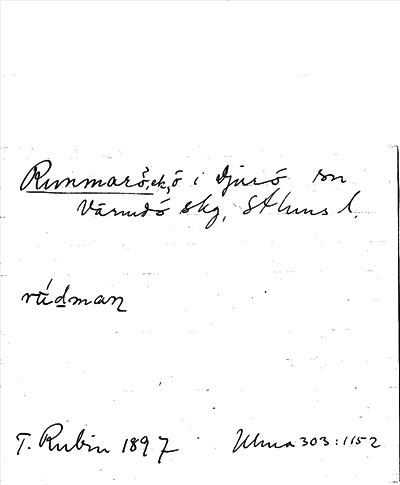 Runmarö, ek, ö i Djurö sn
Värmdö skg, Sthlms l.
rúdman
T. Rubin 1897 Ulma 303:1152